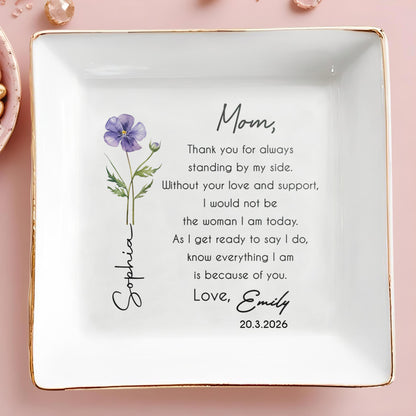 Mom,
Thank you for always
standing by my side.
Without your love and support,
I would not be
the woman I am today.
As I get ready to say I do,
know everything I am
is because of you.
Love, Emily
20.3.2026
Sophia